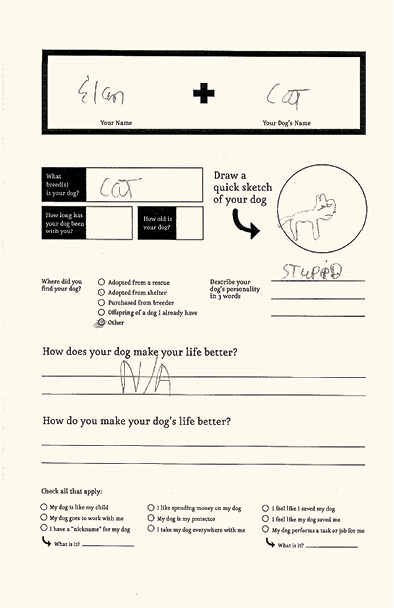 Elan + Cat
Your Name Your Dog's Name
What breed(s) is your dog? CAT
Draw a quick sketch of your dog
How long has your dog been with you?
How old is your dog?
Where did you find your dog?
Adopted from a rescue
Adopted from shelter
Purchased from breeder
Offspring of a dog I already have
Other
Describe your dog's personality in 3 words
STUPiD
How does your dog make your life better?
N/A
How do you make your dog's life better?
Check all that apply:
My dog is like my child
My dog goes to work with me
I have a "nickname" for my dog
What is it?
I like spending money on my dog
My dog is my protector
I take my dog everywhere with me
I feel like I saved my dog
I feel like my dog saved me
My dog performs a task or job for me
What is it?